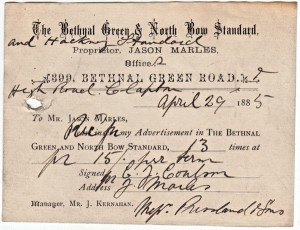 The Bethnal Green & North Bow Standard,
and Hackney Standard
Proprietor, JASON MARLES,
Offices
399, BETHNAL GREEN ROAD, E.
High Road Clapton
April 29 1885
To MR. JASON MARLES,
my Advertisement in THE BETHNAL
GREEN AND NORTH BOW STANDARD, 13 times at
15/- per term
Signed
Address J. Marles
Manager, MR. J. KERNAHAN.
Messrs & Sons